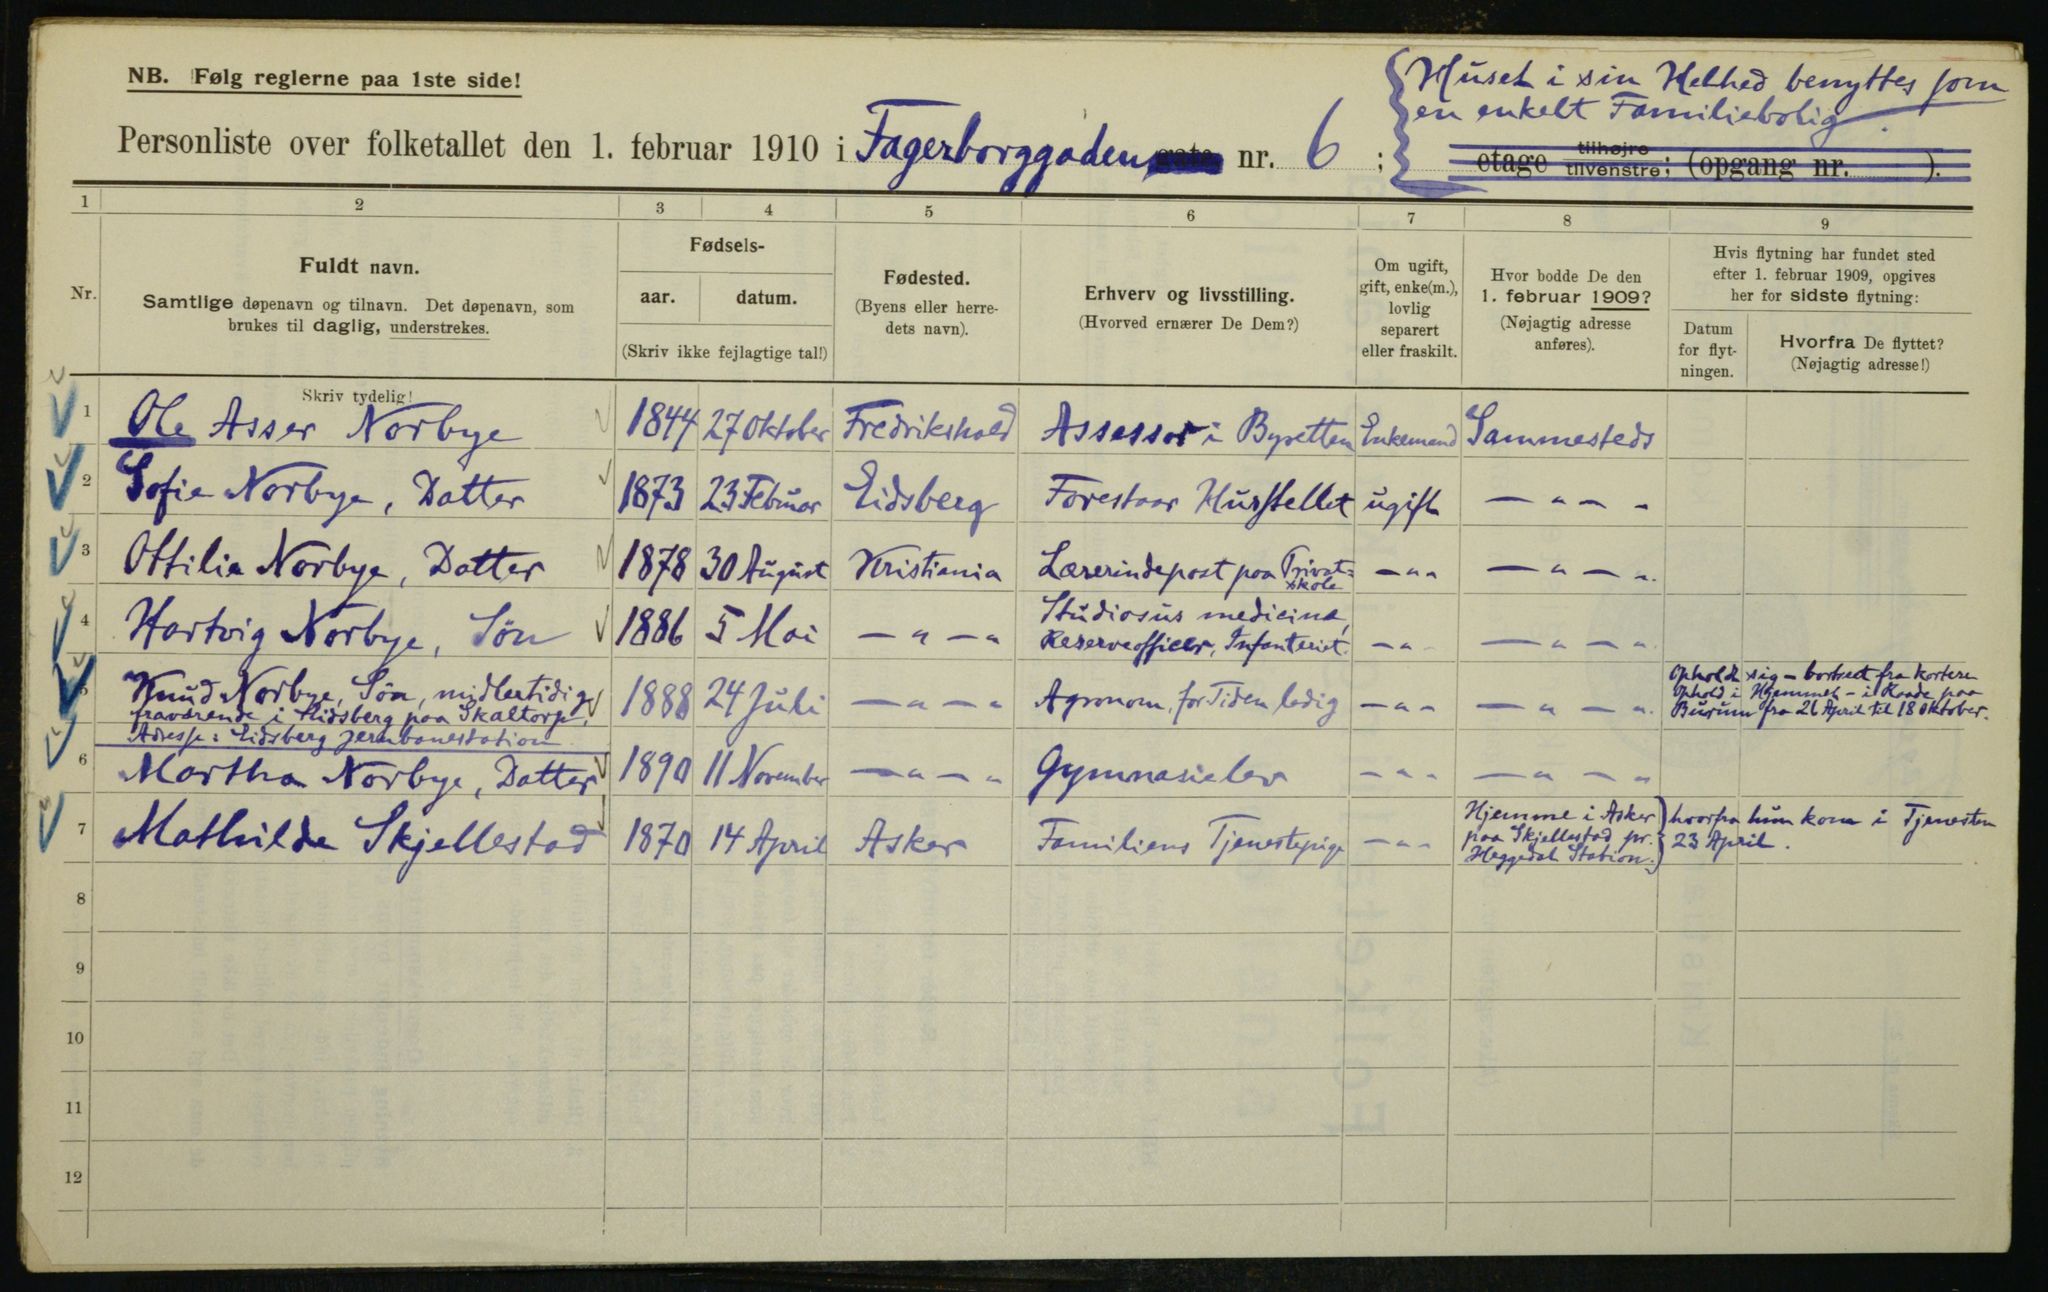 NB. Følg reglerne paa 1ste side!
Huset i sin Helhed benyttes som
en enkelt Familiebolig.
Personliste over folketallet den 1. februar 1910 i Fagerborggaden gate nr. 6 ; etage tilhøjre tilvenstre; (opgang nr. ).
1 2 3 4 5 6 7 8 9
Nr.
Fuldt navn.
Samtlige døpenavn og tilnavn. Det døpenavn, som
brukes til daglig, understrekes.
Fødsels-
aar. datum.
(Skriv ikke fejlagtige tal!)
Fødested.
(Byens eller herre-
dets navn).
Erhverv og livsstilling.
(Hvorved ernærer De Dem?)
Om ugift,
gift, enke(m.),
lovlig
separert
eller fraskilt.
Hvor bodde De den
1. februar 1909?
(Nøjagtig adresse
anføres).
Hvis flytning har fundet sted
efter 1. februar 1909, opgives
her for sidste flytning:
Datum
for flyt-
ningen.
Hvorfra De flyttet?
(Nøjagtig adresse!)
Skriv tydelig!
1 Ole Asser Norbye 1844 27 Oktober Fredrikshald Assessor i Byretten Enkemand Sammesteds
2 Sofie Norbye, Datter 1873 23 Februar Eidsberg Forestaar Husstellet ugift — " — "
3 Ottilia Norbye, Datter 1878 30 August Kristiania Lærerindepost paa Privat=
skole — " " — " — "
4 Hartvig Norbye, Sön 1886 5 Mai — " — " Studiosus medicinæ,
Reserveofficer, Infanteriet. — " — " — "
5 Knud Norbye, Sön, midlertidig
fraværende i Eidsberg paa Skaltorp,
Adresse: Eidsberg Jernbanestation 1888 24 Juli — " — " Agronom, for Tiden ledig — " " — " — "
Opholdt sig – bortset fra kortere
Ophold i Hjemmet – i Raade paa
Burum fra 26 April til 18 Oktober.
6 Martha Norbye, Datter 1890 11 November — " — " Gymnasielev — " " — " — "
7 Mathilde Skjellestad 1870 14 April Asker Familiens Tjenestepige — " "
Hjemme i Asker
paa Skjellestad pr.
Heggedal Station.
hvorfra hun kom i Tjenesten
23 April.
8
9
10
11
12